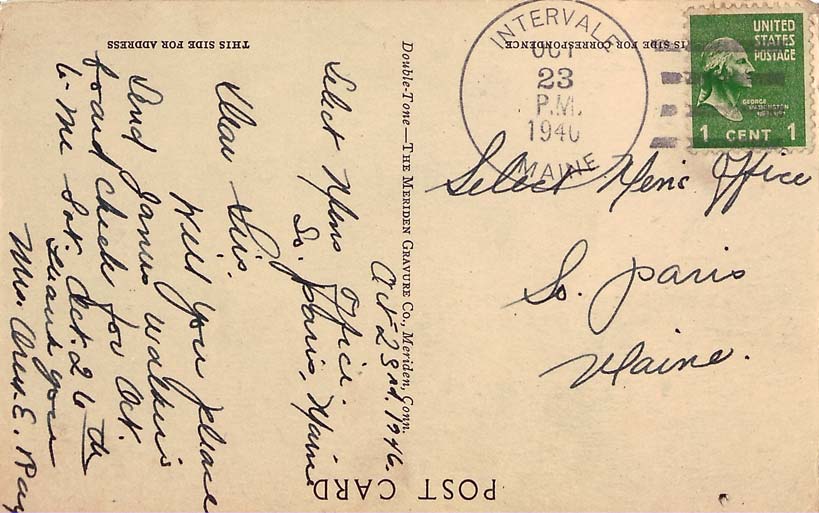 THIS SIDE FOR ADDRESS
THIS SIDE FOR CORRESPONDENCE
POST CARD
Double-Tone—THE MERIDEN GRAVURE CO., Meriden, Conn.
INTERVALE
OCT
23
P.M.
1946
MAINE
UNITED
STATES
POSTAGE
GEORGE
WASHINGTON
1 CENT 1
Select Men's Office
So. Paris
Maine.
Oct 23rd. 1946.
Select Mens Office.
So. Paris, Maine
Dear Sir.
Will you please
Send James Walker's
board check for Oct.
to me Sat. Oct. 26th
Thank you
Mrs. E. Ray